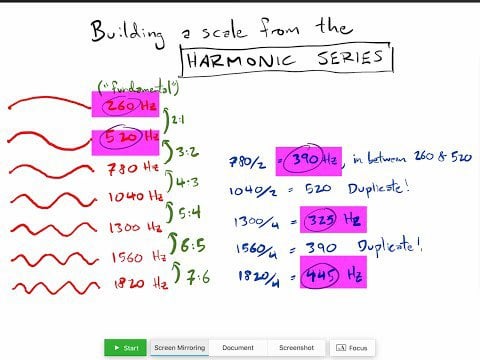 Building a scale from the
HARMONIC SERIES
("fundamental")
260 Hz
2:1
520 Hz
3:2
780 Hz
4:3
1040 Hz
5:4
1300 Hz
6:5
1560 Hz
7:6
1820 Hz
780/2 = 390 Hz, in between 260 & 520
1040/2 = 520 Duplicate!
1300/4 = 325 Hz
1560/4 = 390 Duplicate!
1820/4 = 445 Hz
Start
Screen Mirroring
Document
Screenshot
Focus